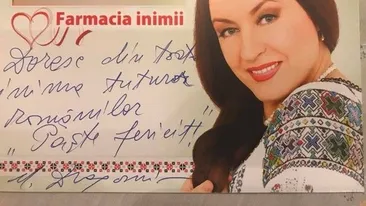 Farmacia inimii
Doresc din toată
inima tuturor
românilor
"Paște fericit!"
M. Dragomir